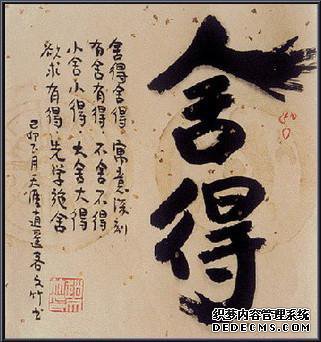 舍得
舍得舍得 寓意深刻
有舍有得 不舍不得
小舍小得 大舍大得
欲求有得 先学施舍
己卯六月天涯逍遥客文竹书
织梦内容管理系统
DEDECMS.COM